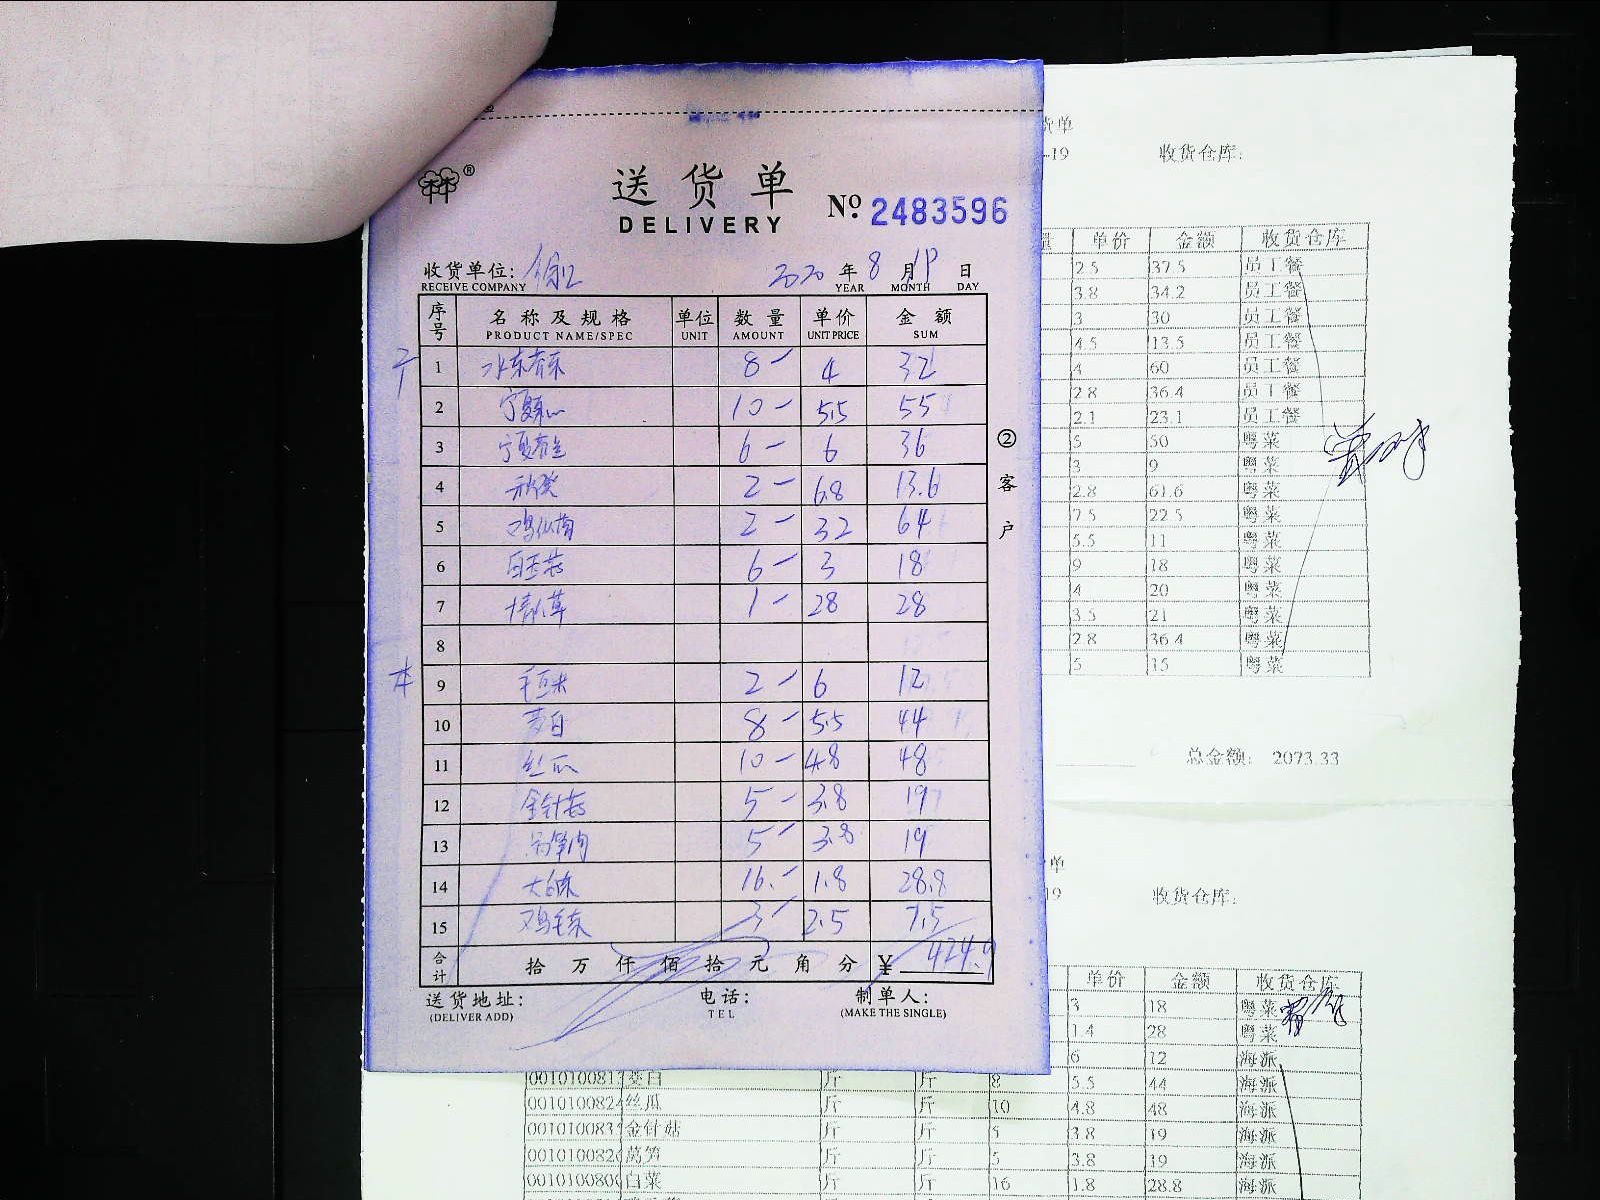 送货单
DELIVERY
№ 2483596
收货单位:
RECEIVE COMPANY
2020 年 8 月 19 日
YEAR MONTH DAY
序号 名称及规格 单位 数量 单价 金额
PRODUCT NAME/SPEC UNIT AMOUNT UNIT PRICE SUM
1 水东芥菜 8 4 32
2 宁夏菜心 10 5.5 55
3 6 6 36
4 秋葵 2 6.8 13.6
5 2 32 64
6 白玉菇 6 3 18
7 1 28 28
8
9 毛豆米 2 6 12
10 茭白 8 5.5 44
11 丝瓜 10 4.8 48
12 金针菇 5 3.8 19
13 5 3.8 19
14 大白菜 16. 1.8 28.8
15 鸡毛菜 3 2.5 7.5
合计 拾 万 仟 佰 拾 元 角 分 ¥ 424.9
送货地址: 电话: 制单人:
(DELIVER ADD) TEL (MAKE THE SINGLE)
② 客户
货单
-19 收货仓库:
量 单价 金额 收货仓库
2.5 37.5 员工餐
3.8 34.2 员工餐
3 30 员工餐
4.5 13.5 员工餐
4 60 员工餐
2.8 36.4 员工餐
2.1 23.1 员工餐
5 50 粤菜
3 9 粤菜
2.8 61.6 粤菜
7.5 22.5 粤菜
5.5 11 粤菜
9 18 粤菜
4 20 粤菜
3.5 21 粤菜
2.8 36.4 粤菜
5 15 粤菜
总金额: 2073.33
单
19 收货仓库:
单价 金额 收货仓库
3 18 粤菜
1.4 28 粤菜
6 12 海派
茭白 斤 斤 8 5.5 44 海派
丝瓜 斤 斤 10 4.8 48 海派
金针菇 斤 斤 5 3.8 19 海派
莴笋 斤 斤 5 3.8 19 海派
白菜 斤 斤 16 1.8 28.8 海派